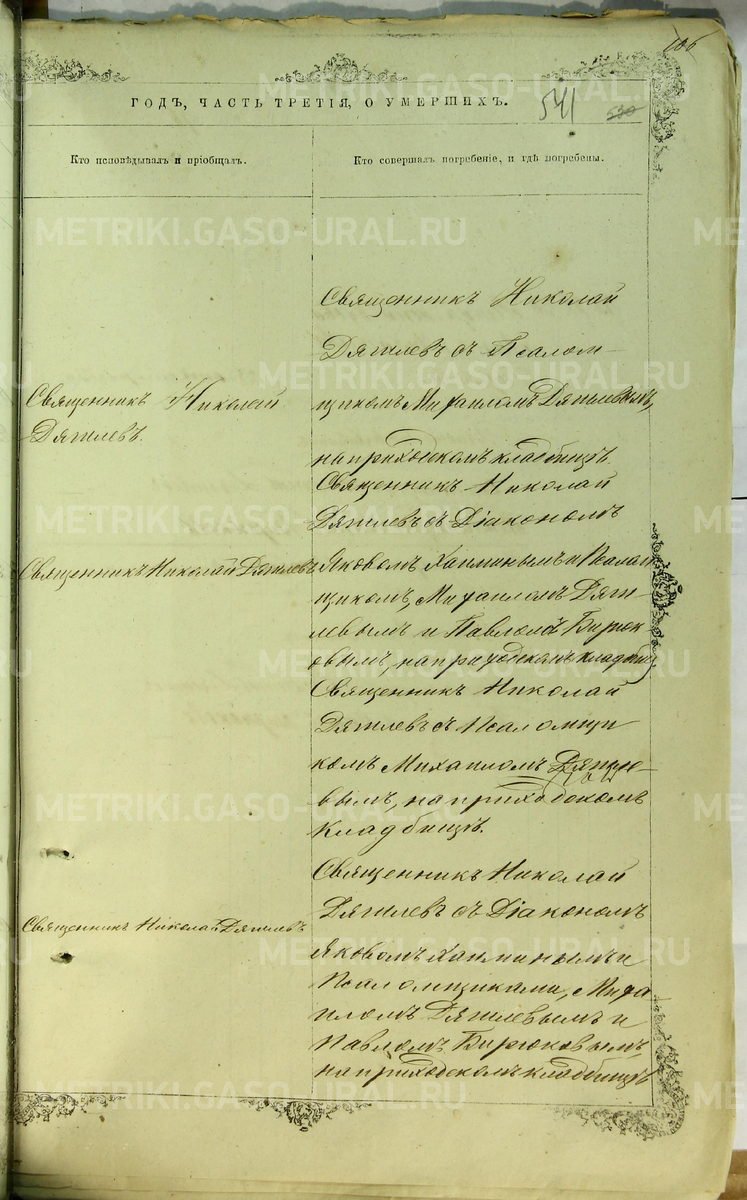 106
ГОДЪ, ЧАСТЬ ТРЕТІЯ, О УМЕРШИХЪ.
541
530
Кто исповѣдывалъ и пріобщалъ.
Кто совершалъ погребеніе, и гдѣ погребены.
Священникъ Николай
Дягилевъ.
Священникъ Николай
Дягилевъ съ Псалом-
щикомъ Михаиломъ Дягилевымъ,
на приходскомъ кладбищѣ.
Священникъ Николай Дягилевъ
Священникъ Николай
Дягилевъ съ Діакономъ
Яковомъ Хапминымъ и Псалом
щикомъ, Михаиломъ Дяги
левымъ и Павломъ Бирюк
овымъ, на приходскомъ кладбищ
Священникъ Николай
Дягилевъ съ Псаломщи
комъ Михаиломъ Дягиле-
вымъ, на приходскомъ
кладбищѣ.
Священникъ Николай Дягилевъ
Священникъ Николай
Дягилевъ съ Діакономъ
Яковомъ Хапминымъ и
Псаломщиками, Миха
иломъ Дягилевымъ и
Павломъ Бирюковымъ,
на приходскомъ кладбищѣ
METRIKI.GASO-URAL.RU